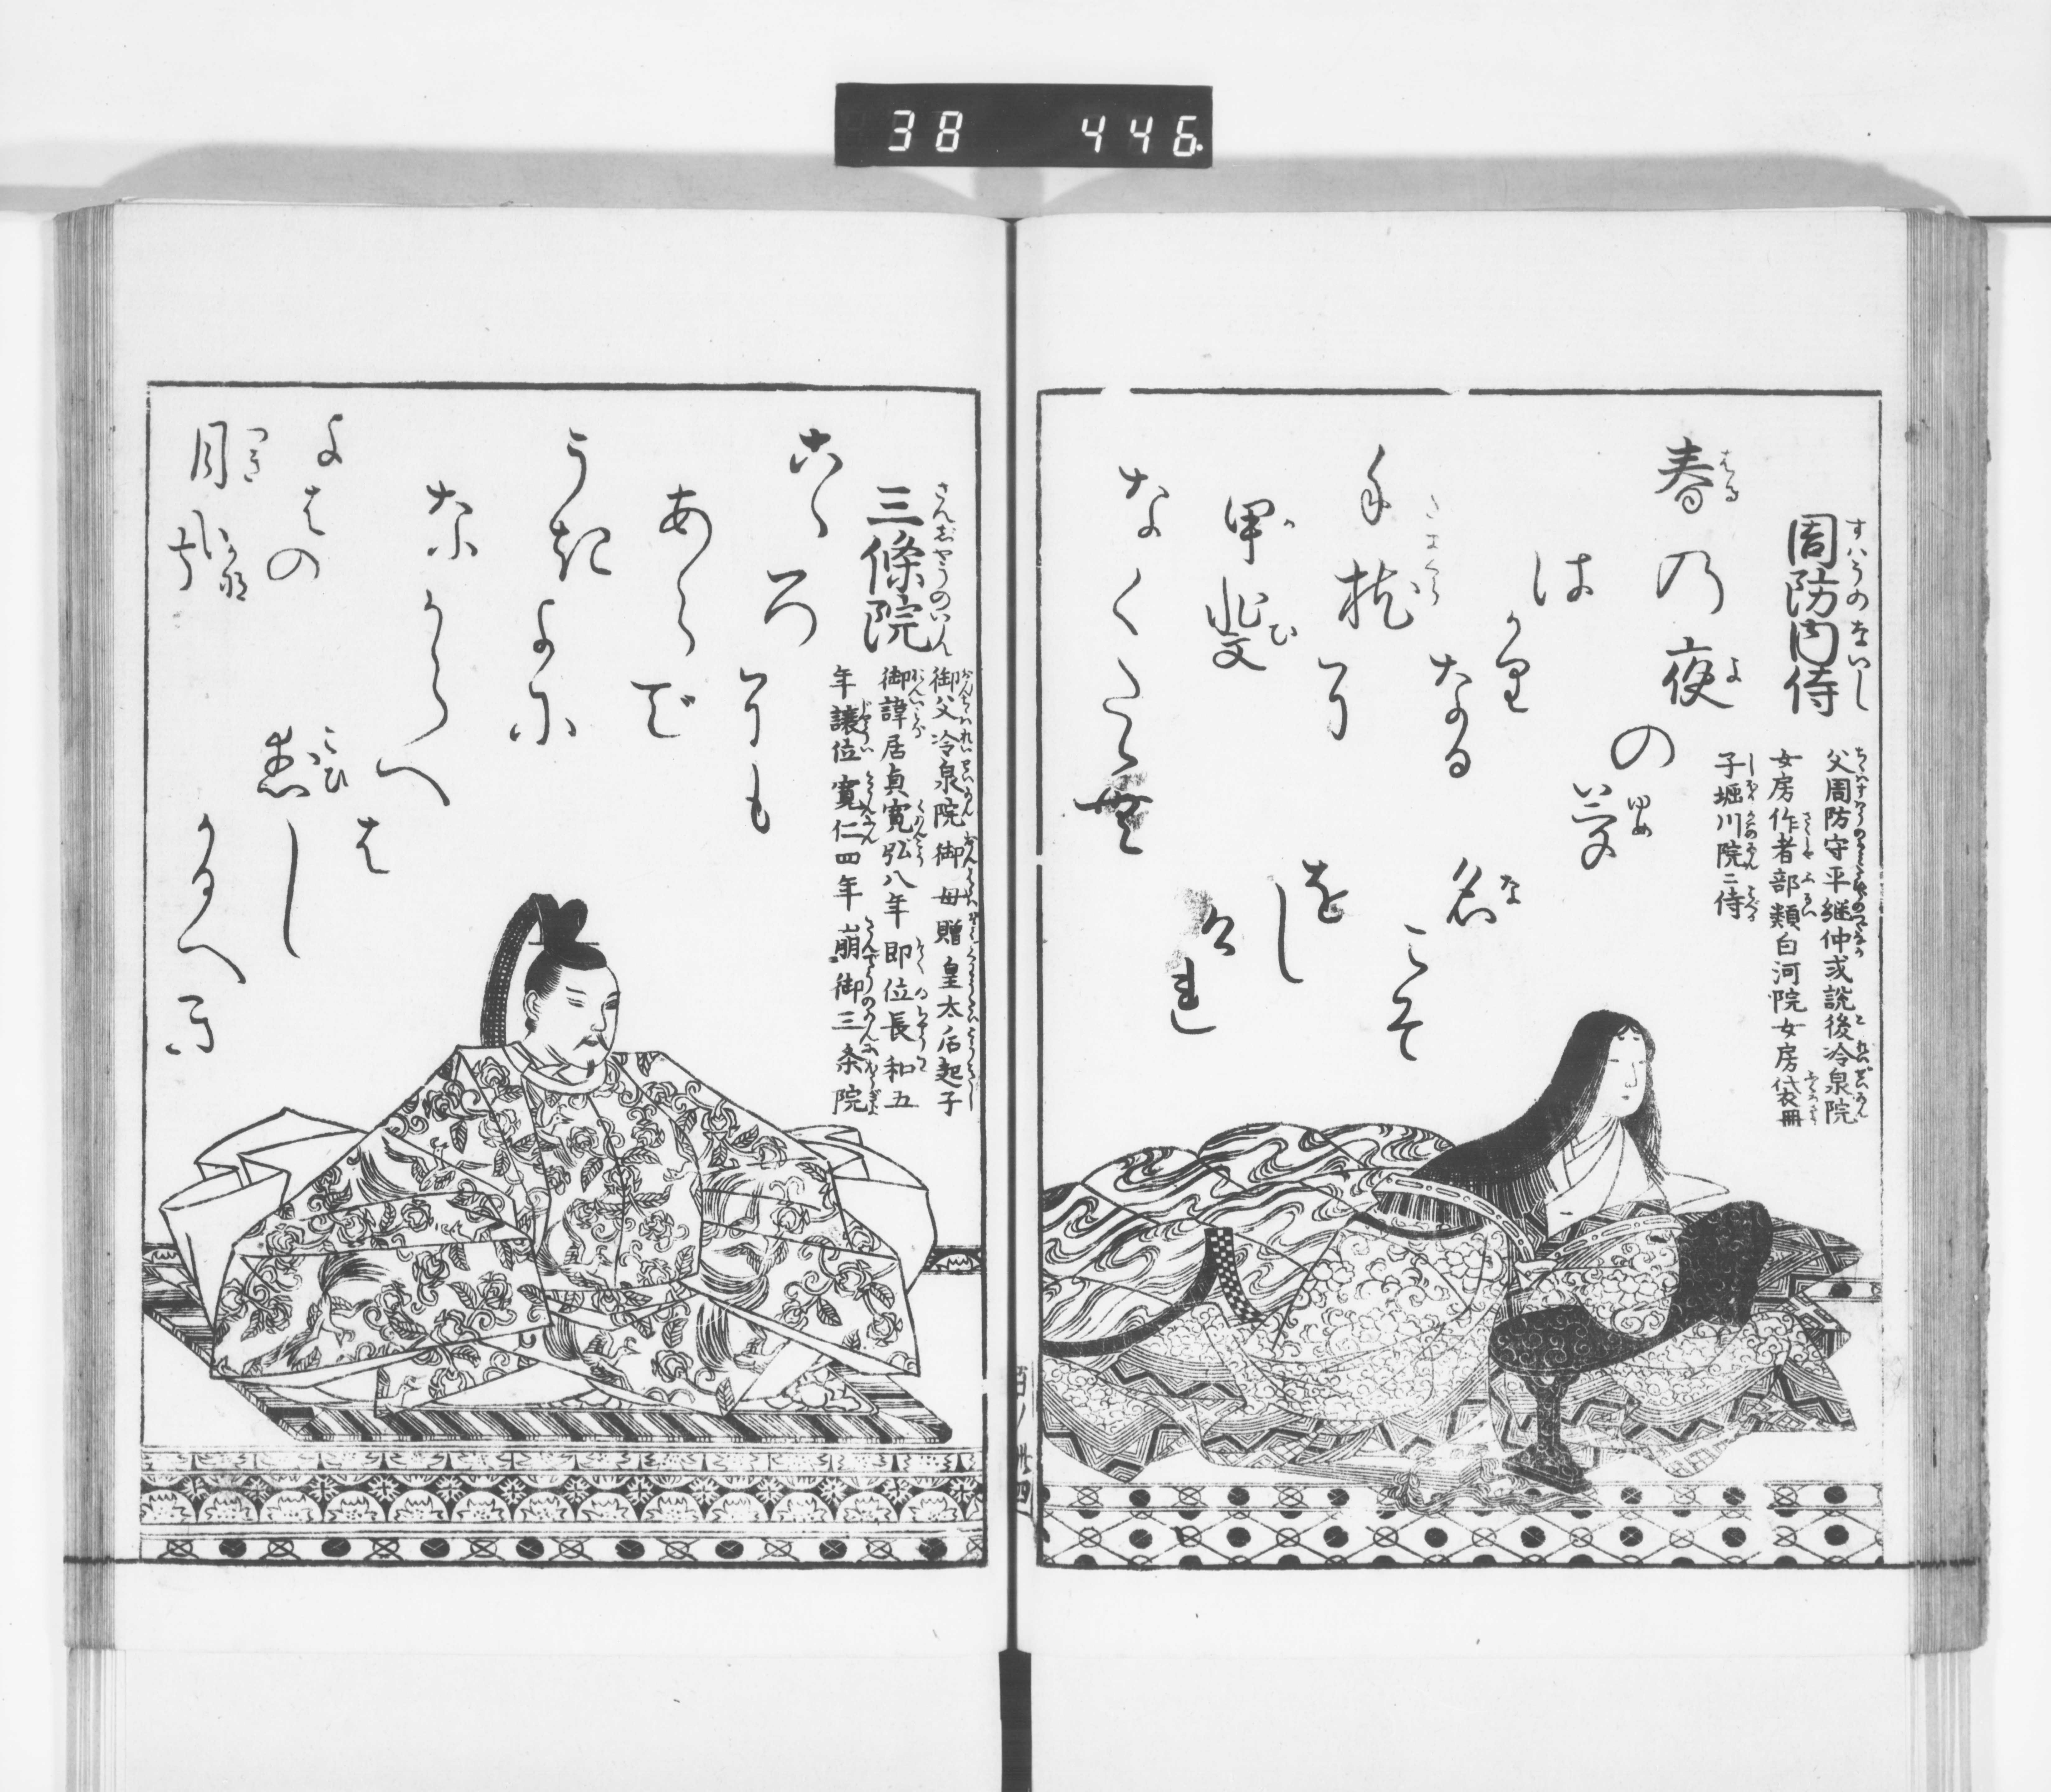 38 446
周防内侍
すはうのないし
父周防守平継仲或説後冷泉院
女房作者部類白河院女房袋冊
子堀川院ニ侍
春乃夜の夢
はかり
なる
手枕に
甲斐
なくたゝ無
名
こそ
を
し
けれ
三條院
さんでうのいん
御父冷泉院御母贈皇太后超子
御諱居貞寛弘八年即位長和五
年譲位寛仁四年崩御三条院
こゝろにも
あらで
うきよに
なからへは
よはの
恋し
かるへき
月哉